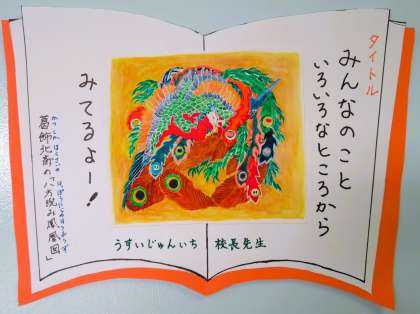 タイトル
みんなのこと
いろいろなところから
みてるよー！
葛飾北斎の「八方睨み鳳凰図」
かつしかほくさい
はっぽうにらみほうおうず
うすいじゅんいち　校長先生